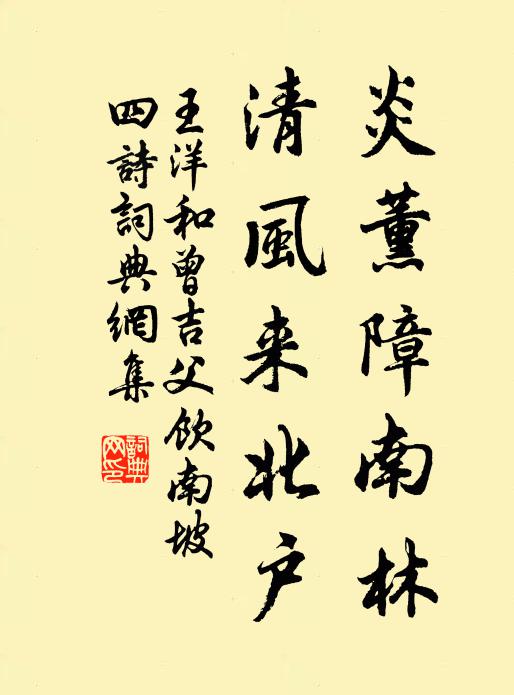 炎薰障南林
清風来北户
王洋和曾吉父飲南坡
四詩詞典網集
詞典网印